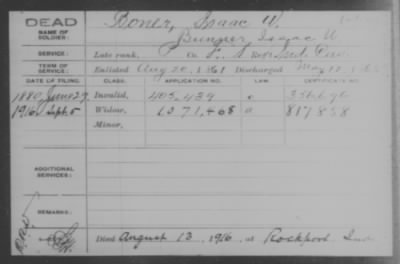 DEAD
NAME OF SOLDIER:
Boner, Isaac W.
Bunner, Isaac W
SERVICE:
Late rank, Co.
TERM OF SERVICE:
Enlisted Aug 20, 1861 Discharged May
DATE OF FILING. CLASS. APPLICATION NO. LAW. CERTIFICATE NO.
1880 June 29 Invalid, 405,439
1916 Sept 5 Widow, 1071,468 817858
Minor,
ADDITIONAL SERVICES:
REMARKS:
Died August 13, 1916, at Rockport Ind